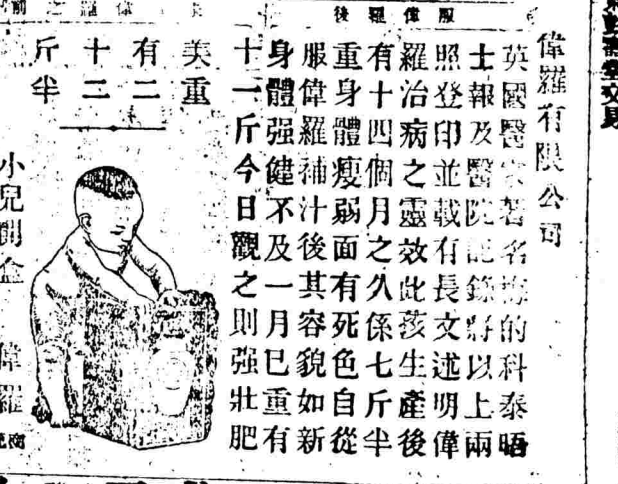 服偉羅後
偉羅有限公司
英國醫家著名的科泰晤
士報及醫院記錄將以上兩
照登印並載有長文述明偉
羅治病之靈效此孩生產後
有十四個月之久係七斤半
重身體瘦弱面有死色自從
服偉羅補汁後其容貌如新
身體强健不及一月已重有
十一斤今日觀之則强壯肥
美重
有二
十二
斤半
小兒開盒 偉羅